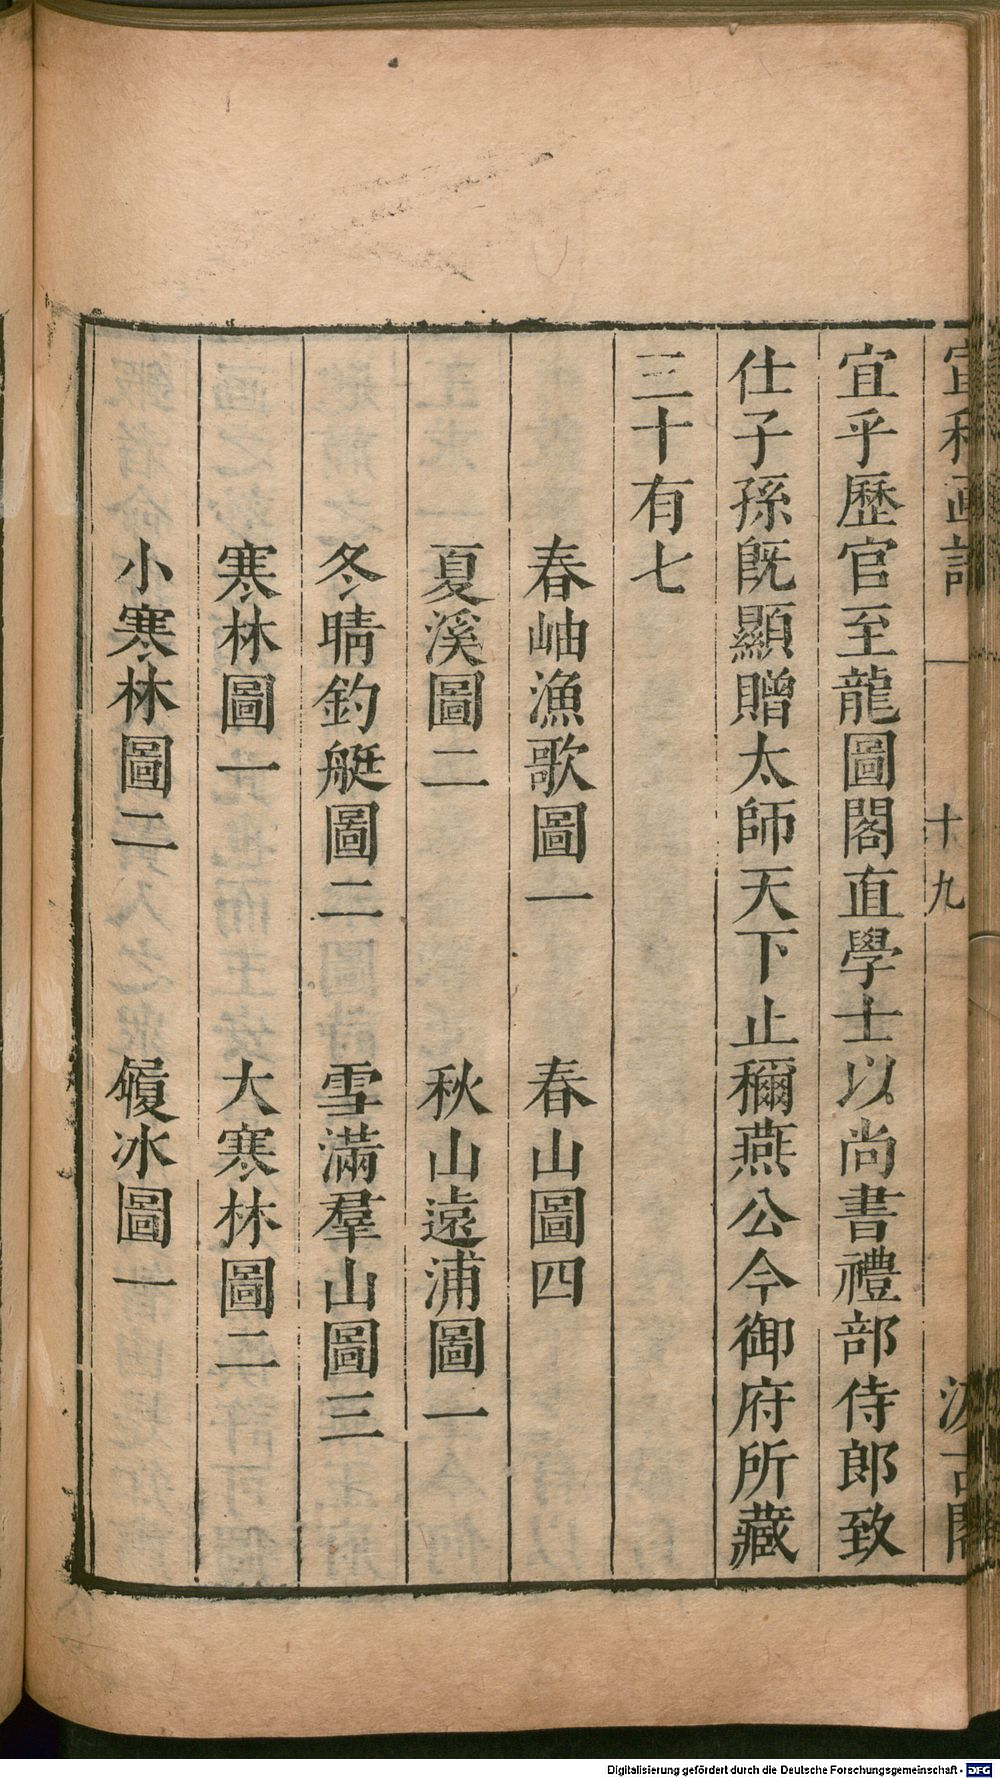 宣和画譜 十九 汲古閣
宜乎歷官至龍圖閣直學士以尚書禮部侍郎致
仕子孫旣顯贈太師天下止稱燕公今御府所藏
三十有七
春岫漁歌圖一 春山圖四
夏溪圖二 秋山遠浦圖一
冬晴釣艇圖二 雪滿羣山圖三
寒林圖一 大寒林圖二
小寒林圖二 履冰圖一
Digitalisierung gefördert durch die Deutsche Forschungsgemeinschaft - DFG